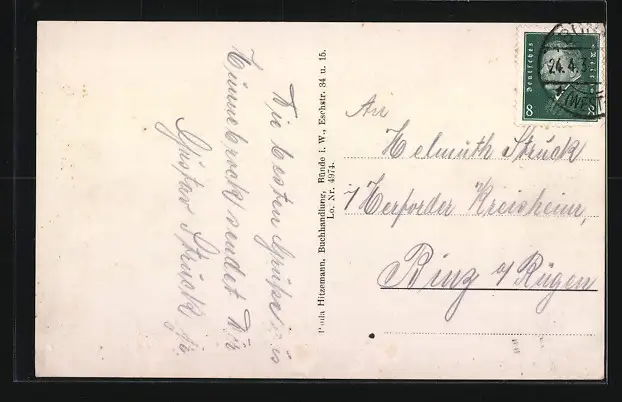 Die besten Grüße aus
Hunnebrock sendet Dir
Gustav Struck jr.
Paula Hitzemann, Buchhandlung, Bünde i. W., Eschstr. 34 u. 15.
Lo. Nr. 4974.
Deutsches Reich
8 8
24.4.3
(WESTF
An
Helmuth Struck
Herforder Kreisheim,
Binz a/Rügen